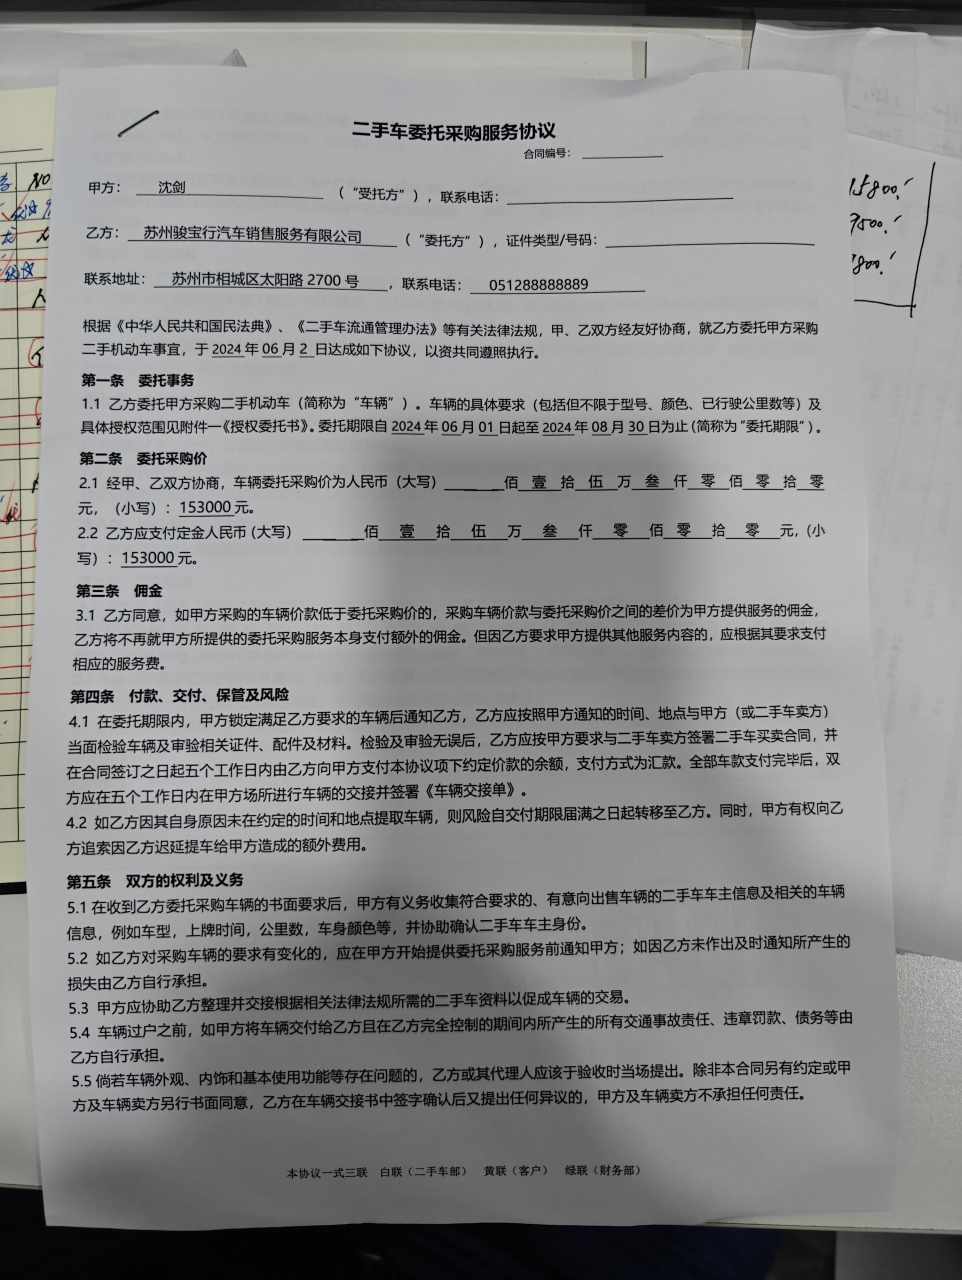 二手车委托采购服务协议
合同编号：
甲方： 沈剑 （“受托方”），联系电话：
乙方： 苏州骏宝行汽车销售服务有限公司 （“委托方”），证件类型/号码：
联系地址： 苏州市相城区太阳路 2700 号 ，联系电话： 051288888889
根据《中华人民共和国民法典》、《二手车流通管理办法》等有关法律法规，甲、乙双方经友好协商，就乙方委托甲方采购
二手机动车事宜，于 2024 年 06 月 2 日达成如下协议，以资共同遵照执行。
第一条 委托事务
1.1 乙方委托甲方采购二手机动车（简称为“车辆”）。车辆的具体要求（包括但不限于型号、颜色、已行驶公里数等）及
具体授权范围见附件一《授权委托书》。委托期限自 2024 年 06 月 01 日起至 2024 年 08 月 30 日为止（简称为“委托期限”）。
第二条 委托采购价
2.1 经甲、乙双方协商，车辆委托采购价为人民币（大写） 佰 壹 拾 伍 万 叁 仟 零 佰 零 拾 零
元，（小写）：153000 元。
2.2 乙方应支付定金人民币（大写） 佰 壹 拾 伍 万 叁 仟 零 佰 零 拾 零 元，（小
写）：153000 元。
第三条 佣金
3.1 乙方同意，如甲方采购的车辆价款低于委托采购价的，采购车辆价款与委托采购价之间的差价为甲方提供服务的佣金，
乙方将不再就甲方所提供的委托采购服务本身支付额外的佣金。但因乙方要求甲方提供其他服务内容的，应根据其要求支付
相应的服务费。
第四条 付款、交付、保管及风险
4.1 在委托期限内，甲方锁定满足乙方要求的车辆后通知乙方，乙方应按照甲方通知的时间、地点与甲方（或二手车卖方）
当面检验车辆及审验相关证件、配件及材料。检验及审验无误后，乙方应按甲方要求与二手车卖方签署二手车买卖合同，并
在合同签订之日起五个工作日内由乙方向甲方支付本协议项下约定价款的余额，支付方式为汇款。全部车款支付完毕后，双
方应在五个工作日内在甲方场所进行车辆的交接并签署《车辆交接单》。
4.2 如乙方因其自身原因未在约定的时间和地点提取车辆，则风险自交付期限届满之日起转移至乙方。同时，甲方有权向乙
方追索因乙方迟延提车给甲方造成的额外费用。
第五条 双方的权利及义务
5.1 在收到乙方委托采购车辆的书面要求后，甲方有义务收集符合要求的、有意向出售车辆的二手车车主信息及相关的车辆
信息，例如车型，上牌时间，公里数，车身颜色等，并协助确认二手车车主身份。
5.2 如乙方对采购车辆的要求有变化的，应在甲方开始提供委托采购服务前通知甲方；如因乙方未作出及时通知所产生的
损失由乙方自行承担。
5.3 甲方应协助乙方整理并交接根据相关法律法规所需的二手车资料以促成车辆的交易。
5.4 车辆过户之前，如甲方将车辆交付给乙方且在乙方完全控制的期间内所产生的所有交通事故责任、违章罚款、债务等由
乙方自行承担。
5.5 倘若车辆外观、内饰和基本使用功能等存在问题的，乙方或其代理人应该于验收时当场提出。除非本合同另有约定或甲
方及车辆卖方另行书面同意，乙方在车辆交接书中签字确认后又提出任何异议的，甲方及车辆卖方不承担任何责任。
本协议一式三联 白联（二手车部） 黄联（客户） 绿联（财务部）
NO
15800.